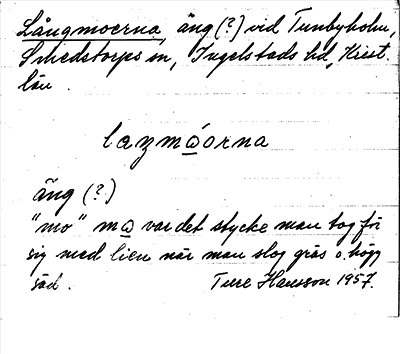 Långmoerna, äng (?) vid Tunbyholm,
Smedstorps sn, Ingelstads hd, Krist.
län.
lazmåorna
äng (?)
"mo" må var det stycke man tog för
sig med lien när man slog gräs o. högg
säd. Ture Hansson 1957.